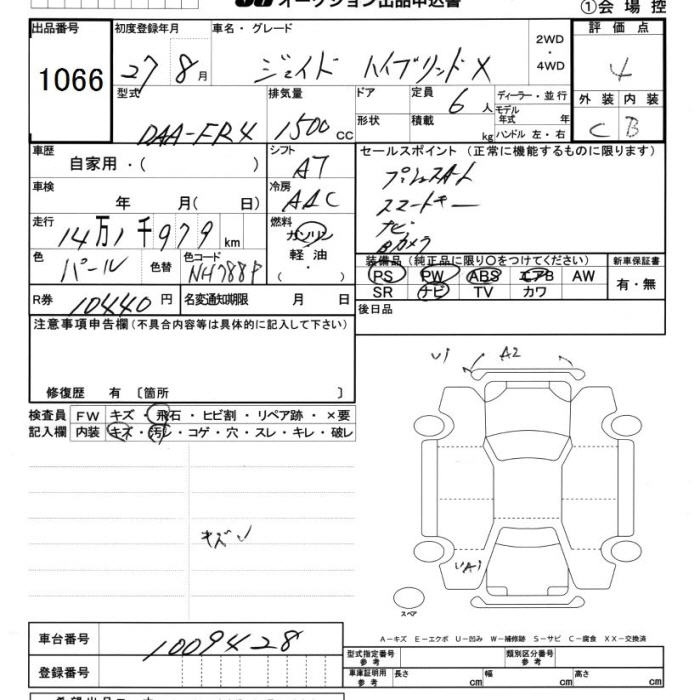 オークション出品申込書
①会場控
出品番号 初度登録年月 車名・グレード 2WD・4WD 評価点
1066 27 8月 ジェイド ハイブリッドX 4
型式 排気量 ドア 定員 6人 ディーラー・並行 外装 内装
DAA-FR4 1500cc 形状 積載 kg モデル年式 年 ハンドル 左・右 C B
車歴 自家用・( ) シフト AT セールスポイント(正常に機能するものに限ります)
車検 年 月( 日) 冷房 AAC
プッシュスタート
スマートキー
ナビ
Bカメラ
走行 14万1千979km 燃料 ガソリン 軽油・
色 パール 色替 色コード NH788P
装備品(純正品に限り○をつけてください) 新車保証書
PS PW ABS エアB AW 有・無
SR ナビ TV カワ
R券 10440円 名変通知期限 月 日
後日品
注意事項申告欄(不具合内容等は具体的に記入して下さい)
修復歴 有 〔箇所 〕
検査員記入欄 FW キズ・飛石・ヒビ割・リペア跡・×要
内装 キズ・汚レ・コゲ・穴・スレ・キレ・破レ
U1 A2
キズU
UA1
スペア
A-キズ E-エクボ U-凹み W-補修跡 S-サビ C-腐食 XX-交換済
車台番号 1009428
型式指定番号 参考 類別区分番号 参考
登録番号 車庫証明用 参考 長さ cm 幅 cm 高さ cm